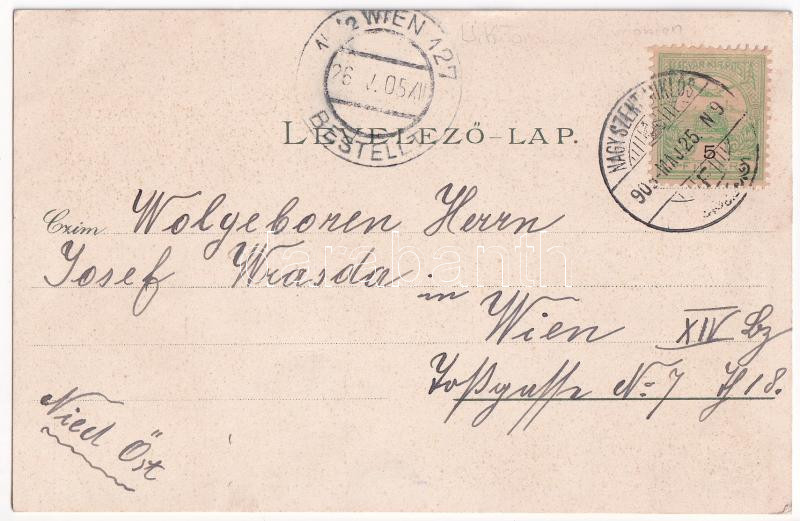 WIEN 127
26 V 05 XI
BESTELLT
NAGYSZENTMIKLÓS
905 MÁJ. 25. N 9
5
LEVELEZŐ-LAP.
Czim: Wolgeboren Herrn
Josef Wrasda in
Wien XIV Bz
No 7 Th 18.
Nied Öst
darabanth